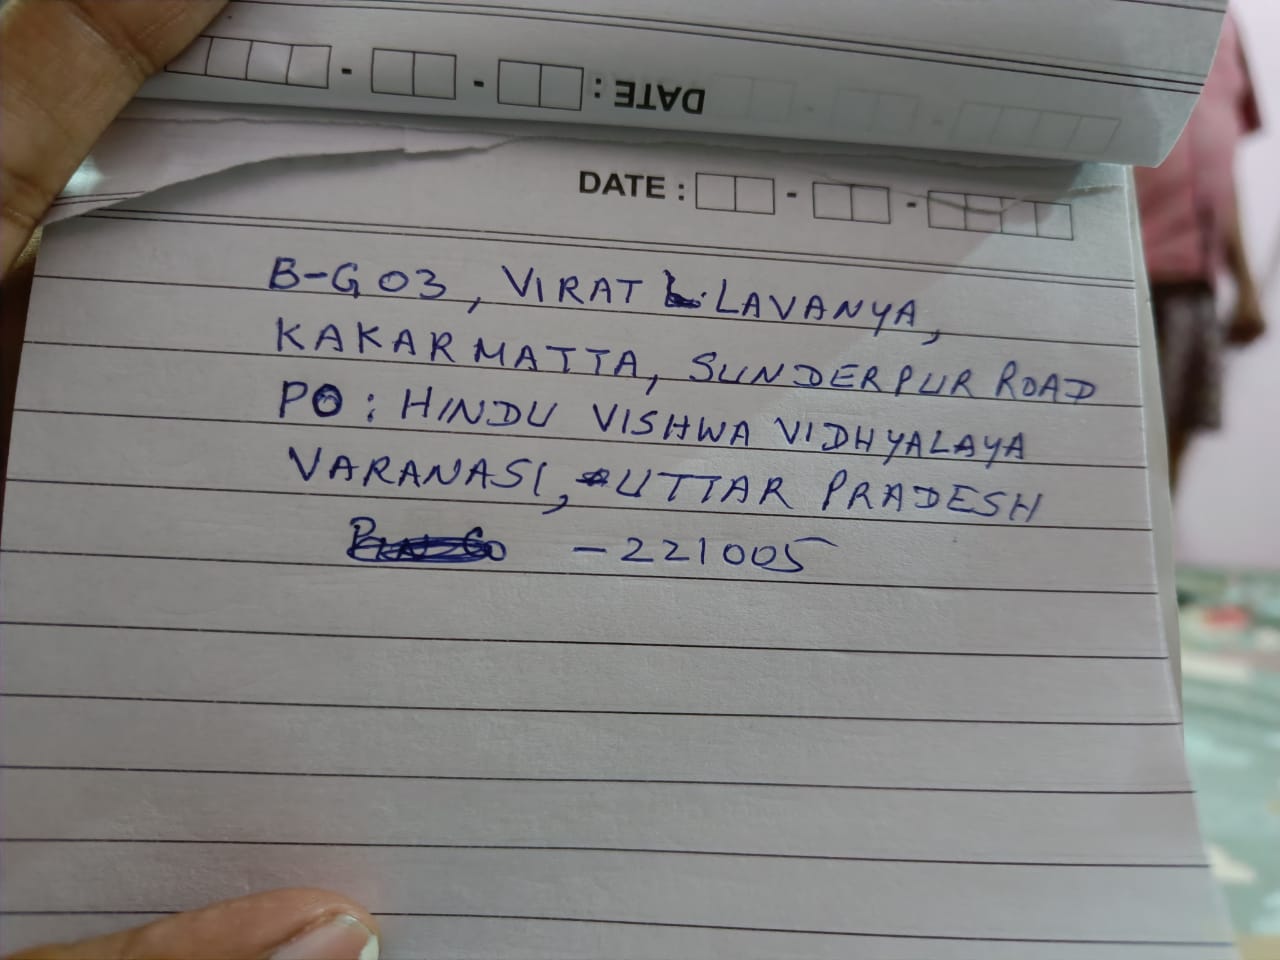 DATE :
DATE :
B-G03, VIRAT LAVANYA,
KAKARMATTA, SUNDERPUR ROAD
PO : HINDU VISHWA VIDHYALAYA
VARANASI, UTTAR PRADESH
- 221005